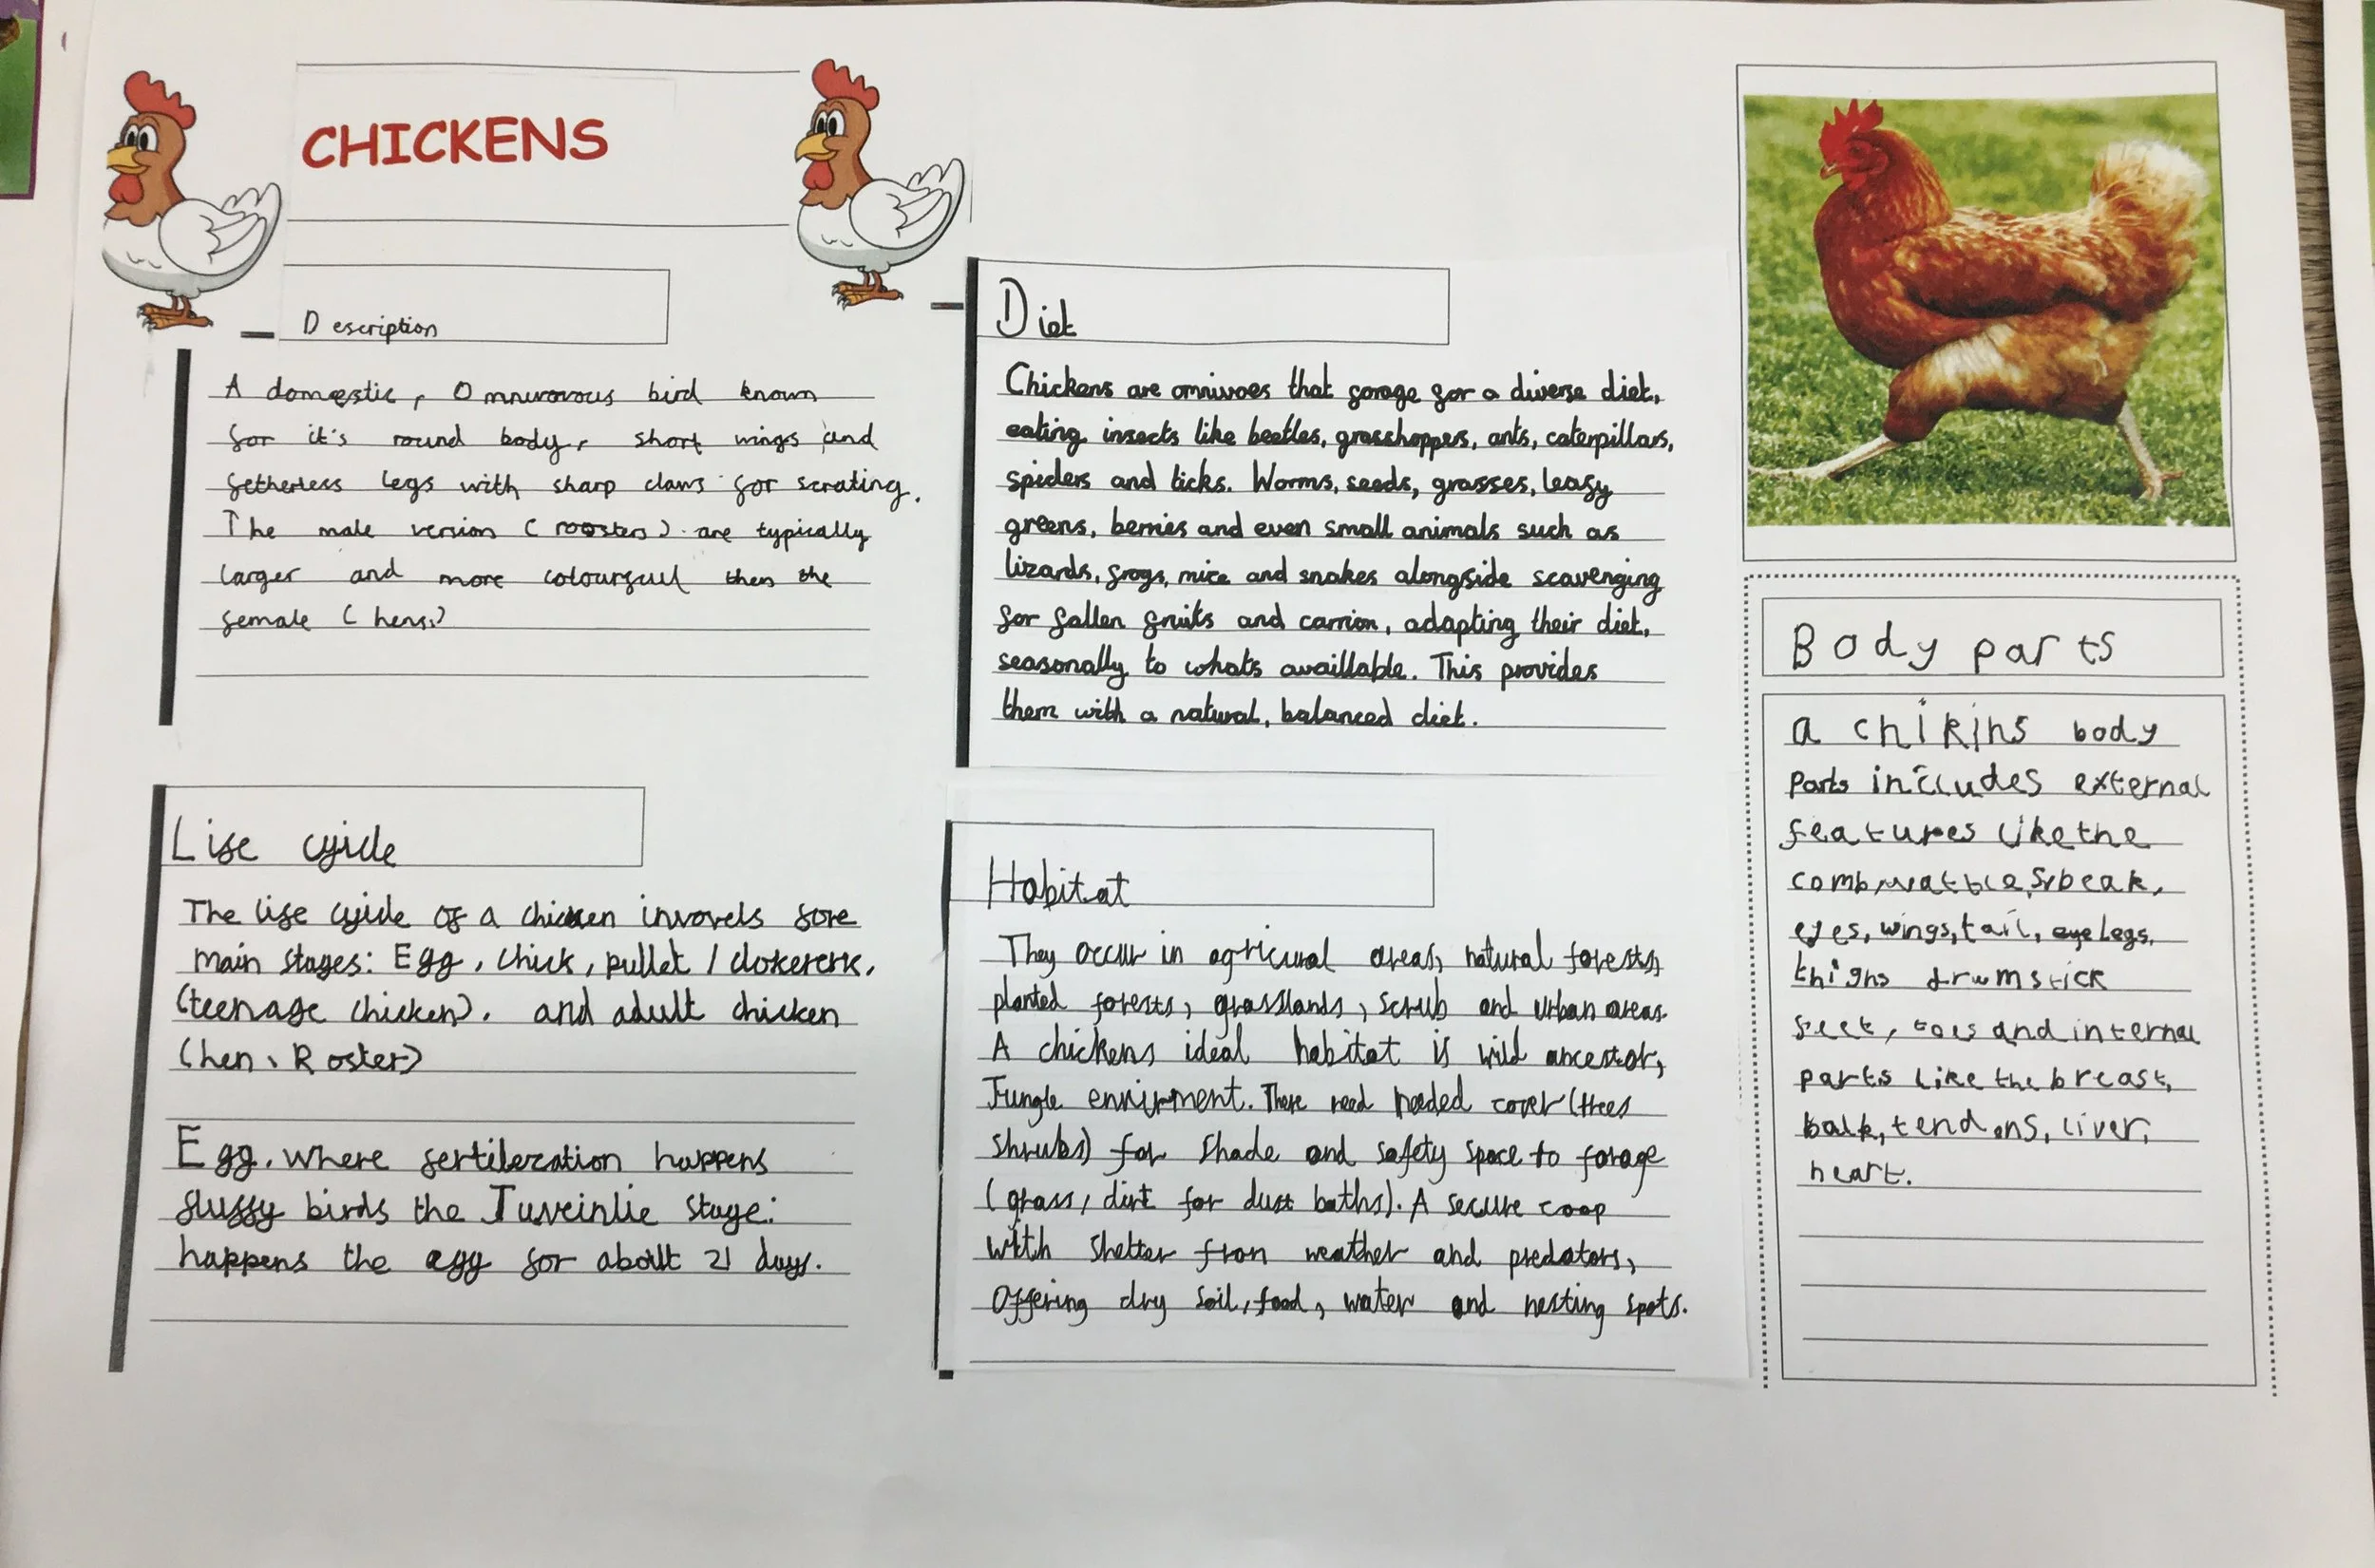 CHICKENS
Description
A domestic, Omnivorous bird known
for it's round body, short wings and
fetherless legs with sharp claws for scrating.
The male version (roosters) are typically
larger and more colourfull then the
female (hens.)
Life cycle
The life cycle of a chicken invovels fore
main stages: Egg, chick, pullet / clokererk,
(teenage chicken), and adult chicken
(hen, Roster)
Egg, where fertileration happens
fluffy birds the Juveinlie stage:
happens the egg for about 21 days.
Diet
Chickens are omnivoes that forage for a diverse diet,
eating insects like beetles, grasshoppers, ants, caterpillars,
spiders and ticks. Worms, seeds, grasses, leafy
greens, berries and even small animals such as
lizards, frogs, mice and snakes alongside scavenging
for fallen fruits and carrion, adapting their diet,
seasonally to whats availlable. This provides
them with a natural, balanced diet.
Habitat
They occur in agricural areas, natural forests,
planted forests, grasslands, scrub and urban areas.
A chickens ideal habitat is wild ancestor,
Jungle envirment. There need needed cover (trees
shrubs) for shade and safety space to forage
(grass, dirt for dust baths). A secure coop
with shelter from weather and predators,
offering dry soil, food, water and nesting spots.
Body parts
a chikins body
parts includes external
features like the
comb, beak,
eyes, wings, tail, legs,
thighs drumstick
feet, toes and internal
parts like the breast,
balk, tendons, liver,
heart.